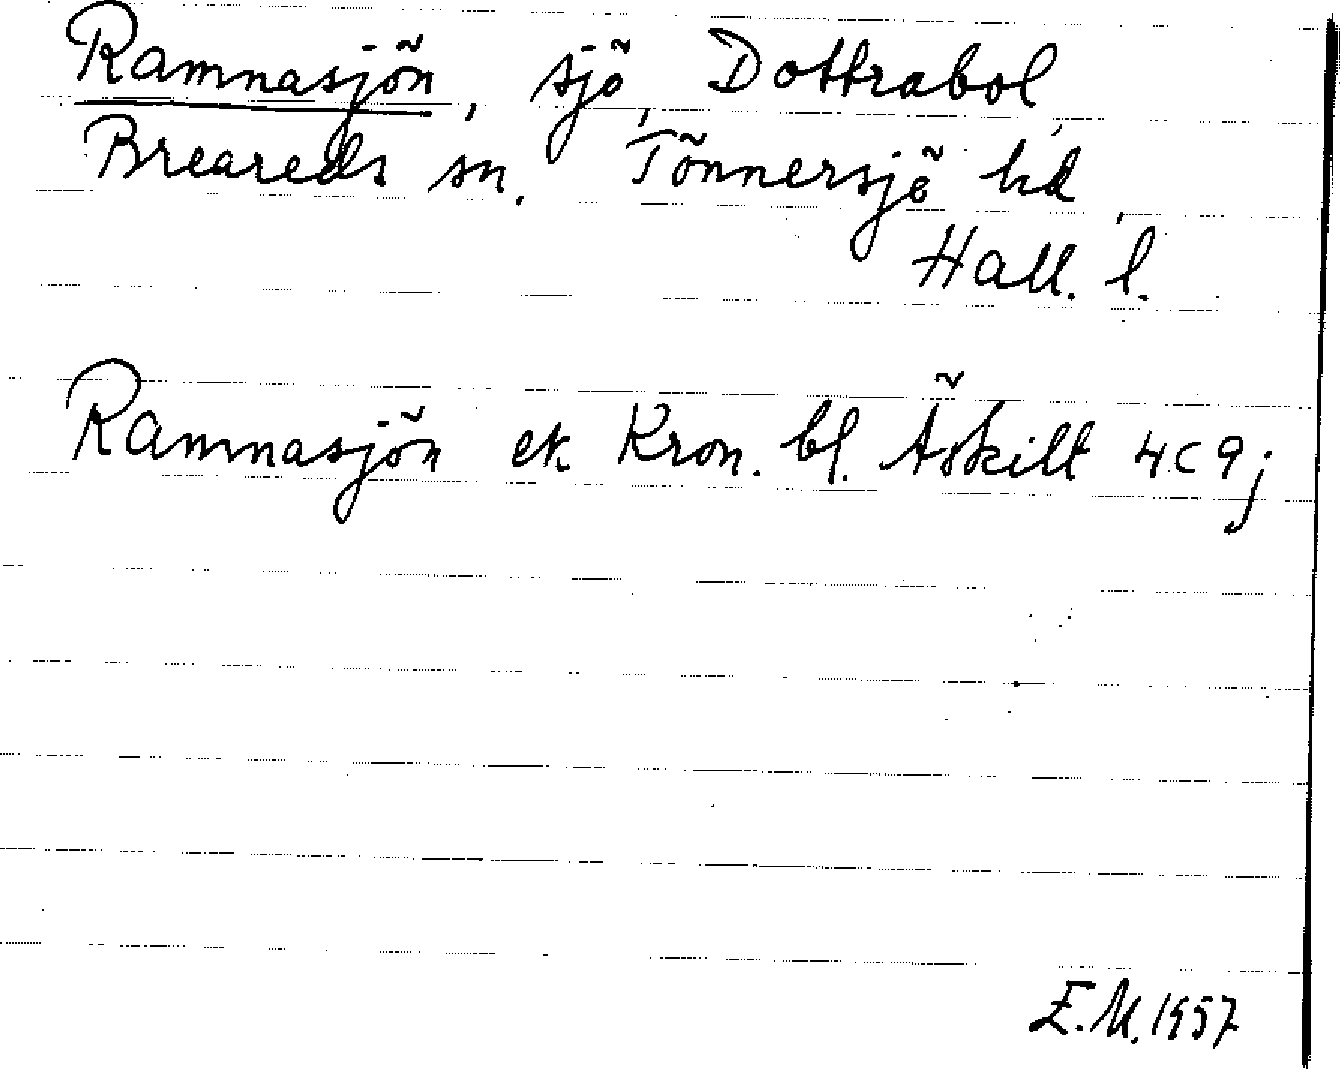 Ramnasjön, sjö, Dottrabol,
Breareds sn. Tönnersjö hd,
Hall. l.
Ramnasjön ek. Kron. bl. Äskilt 4C9j
E.M. 1957